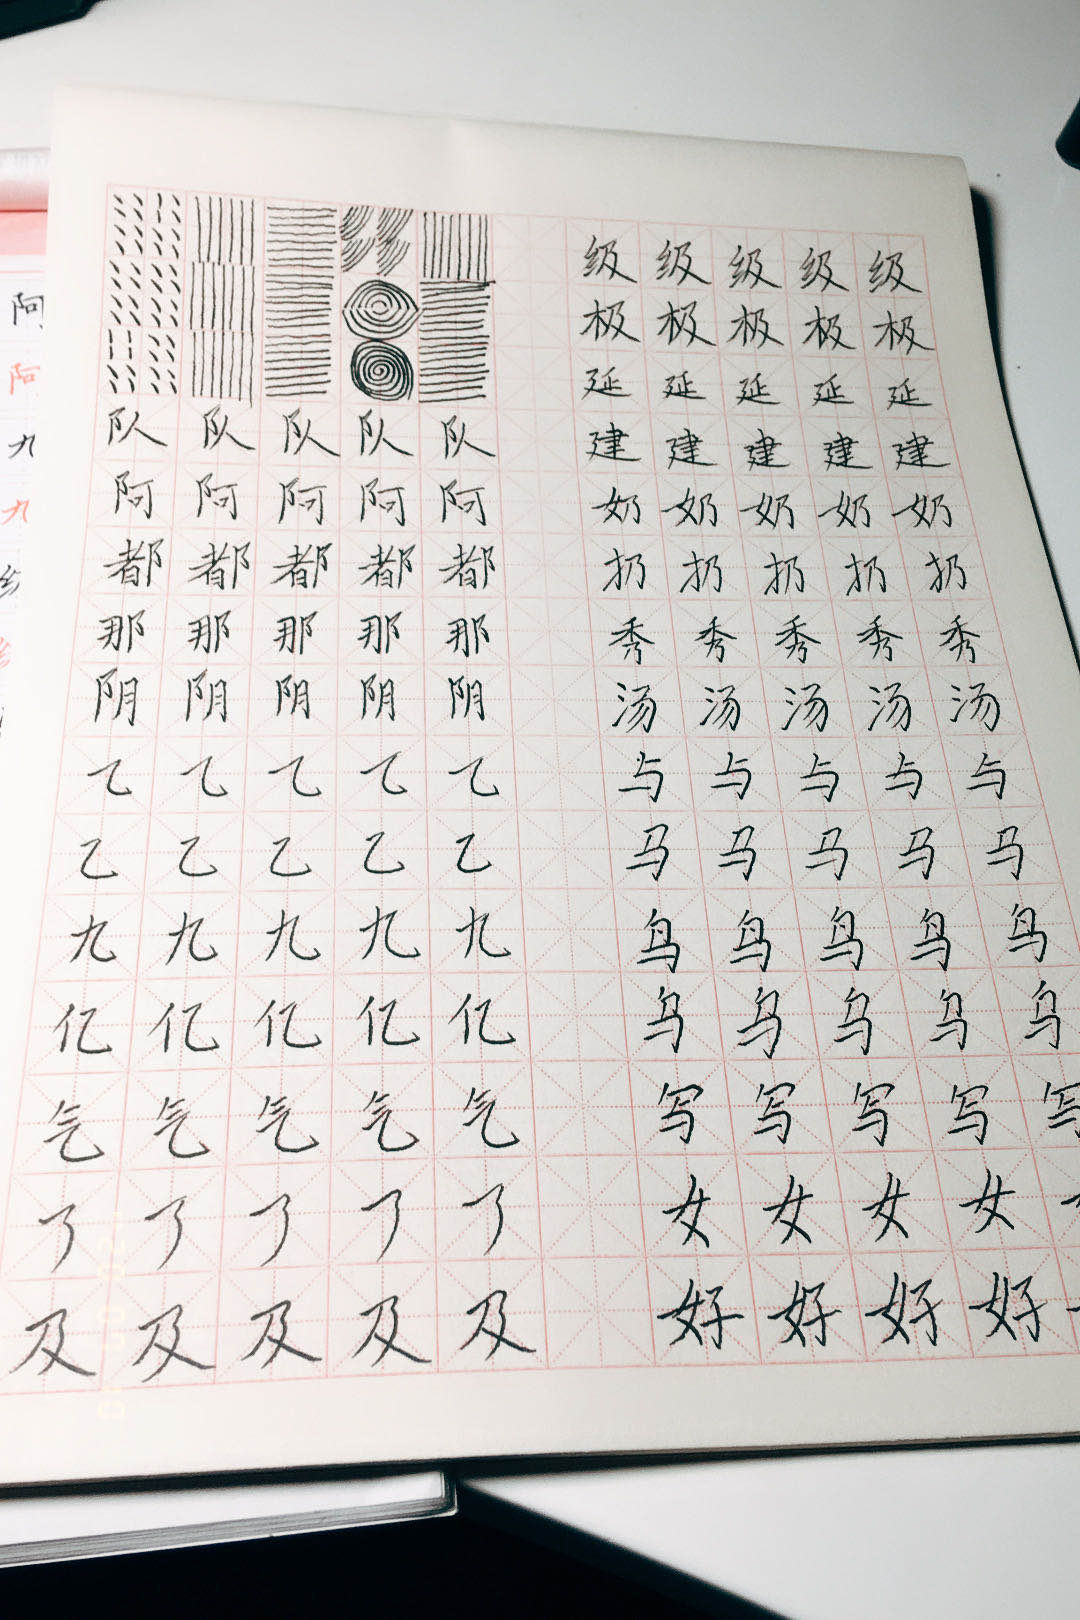 阿
阿
九
九
队 队 队 队 队
阿 阿 阿 阿 阿
都 都 都 都 都
那 那 那 那 那
阴 阴 阴 阴 阴
⺄ ⺄ ⺄ ⺄ ⺄
乙 乙 乙 乙 乙
九 九 九 九 九
亿 亿 亿 亿 亿
气 气 气 气 气
了 了 了 了 了
及 及 及 及 及
级 级 级 级 级
极 极 极 极 极
延 延 延 延 延
建 建 建 建 建
奶 奶 奶 奶 奶
扔 扔 扔 扔 扔
秀 秀 秀 秀 秀
汤 汤 汤 汤 汤
与 与 与 与 与
马 马 马 马 马
鸟 鸟 鸟 鸟 鸟
乌 乌 乌 乌 乌
写 写 写 写 写
女 女 女 女
好 好 好 好